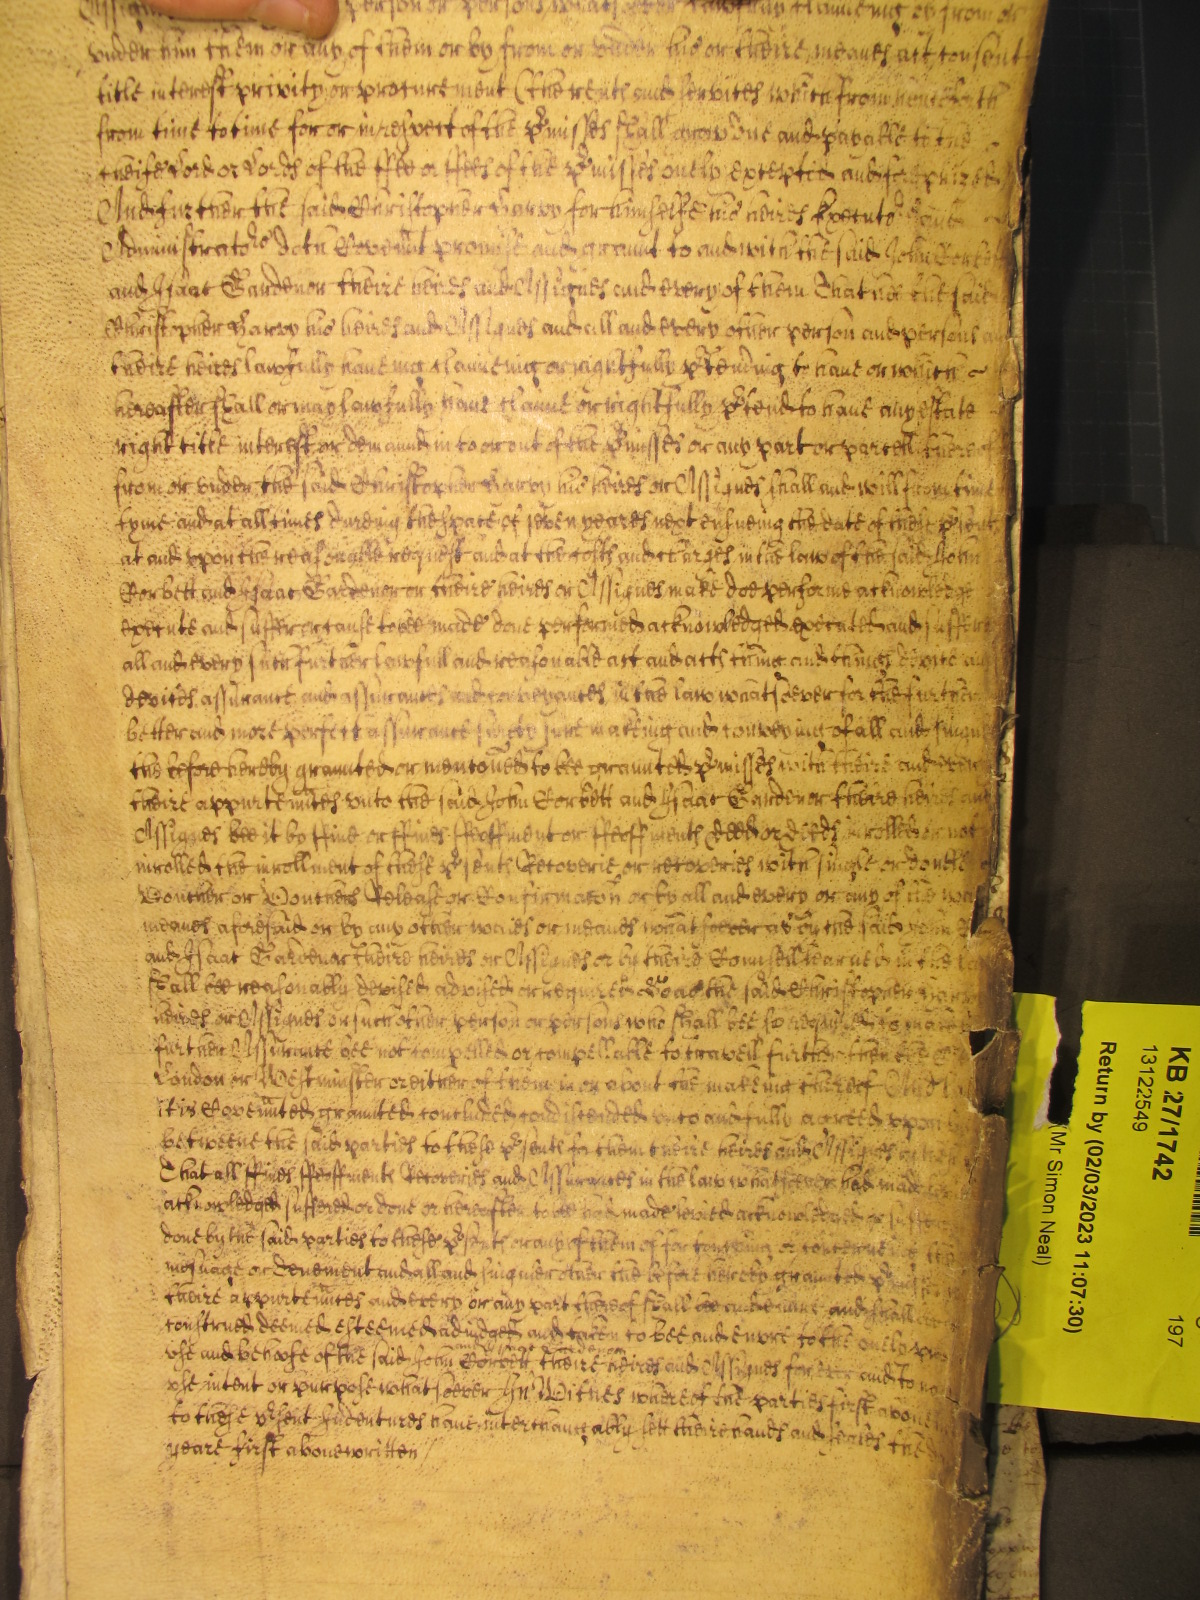 person or persons whatsoever lawfully claimeing by from or
vnder him them or any of them or by from or vnder his or theire meanes act consent
title interest privity or procurement (The rents and services which from henceforth
from time to time for or in respect of the p'misses shall grow due and payable to the
cheife Lord or Lords of the ffee or ffees of the p'misses onely excepted and foreprized
And further the said Christopher Harvy for himselfe his heires Executors and
Administrators doth Covennt promise and graunt to and with the said John Corbett
and Isaac Gardener theire heires and Assignes and every of them That hee the said
Christopher Harvy his heires and Assignes and all and every other person and persons and
theire heires lawfully haueing claimeing or rightfully p'tending to haue or which
hereafter shall or may lawfully haue claime or rightfully p'tend to haue any estate
right title interest or demaund in to or out of the p'misses or any part or parcell thereof
from or vnder the said Christopher Harvy his heires or Assignes shall and will from time
tyme and at all times dureing the space of seven yeares next ensueing the date of these p'sents
at and vpon the reasonable request and at the costs and charges in the law of the said John
Corbett and Isaac Gardener or theire heires or Assignes make doe performe acknowledge
execute and suffer or cause to bee made done performed acknowledged executed and suffered
all and every such further lawfull and reasonable act and acts thing and things devise and
devises assurance and assurances and conveyances in the law whatsoever for the further
better and more perfect assurance surety sure makeing and conveying of all and singuler
the before hereby graunted or menconed to bee graunted p'misses with theire and every
theire appurtennces vnto the said John Corbett and Isaac Gardener theire heires and
Assignes bee it by ffine or ffines ffeoffment or ffeoffments deed or deeds inrolled or not
inrolled the inrollment of these p'sents Recoverie or recoveries with single or double
Voucher or Vouchers Release or Confirmacon or by all and every or any of the waies
meanes aforesaid or by any other waies or meanes whatsoever as by the said John
and Isaac Gardener theire heires or Assignes or by theire Counsell learned in the law
shall bee reasonably devised advised or required Soe as the said Christopher Harvy
heires or Assignes or such other person or persons who shall bee so required to make
further Assurance bee not compelled or compellable to travell further then the
London or Westminster or either of them in or about the makeing thereof And
it is Covennted graunted concluded condiscended vnto and fully agreed vpon
betweene the said parties to these p'sents for them theire heires and Assignes
That all ffines ffeoffments Recoveries and Assurances in the law whatsoever had made
acknowledged suffered or done or hereafter to bee had made levied acknowledged suffered
done by the said parties to these p'sents or any of them of for touching or concerneing the
messuage or Tenement and all and singuler other the before hereby graunted p'misses
theire appurtennces and every or any part thereof shall bee and enure and shall
construed deemed esteemed adiudged and taken to bee and enure to the onely
vse and behoofe of the said John Corbett and Isaac Gardener theire heires and Assignes for ever and to no
vse intent or purpose whatsoever In Witnes whereof the parties first aboue
to these p'sent Indentures haue interchangably sett theire hands and seales the
yeare first aboue written /
KB 27/1742
13122549
197
Return by (02/03/2023 11:07:30)
(Mr Simon Neal)